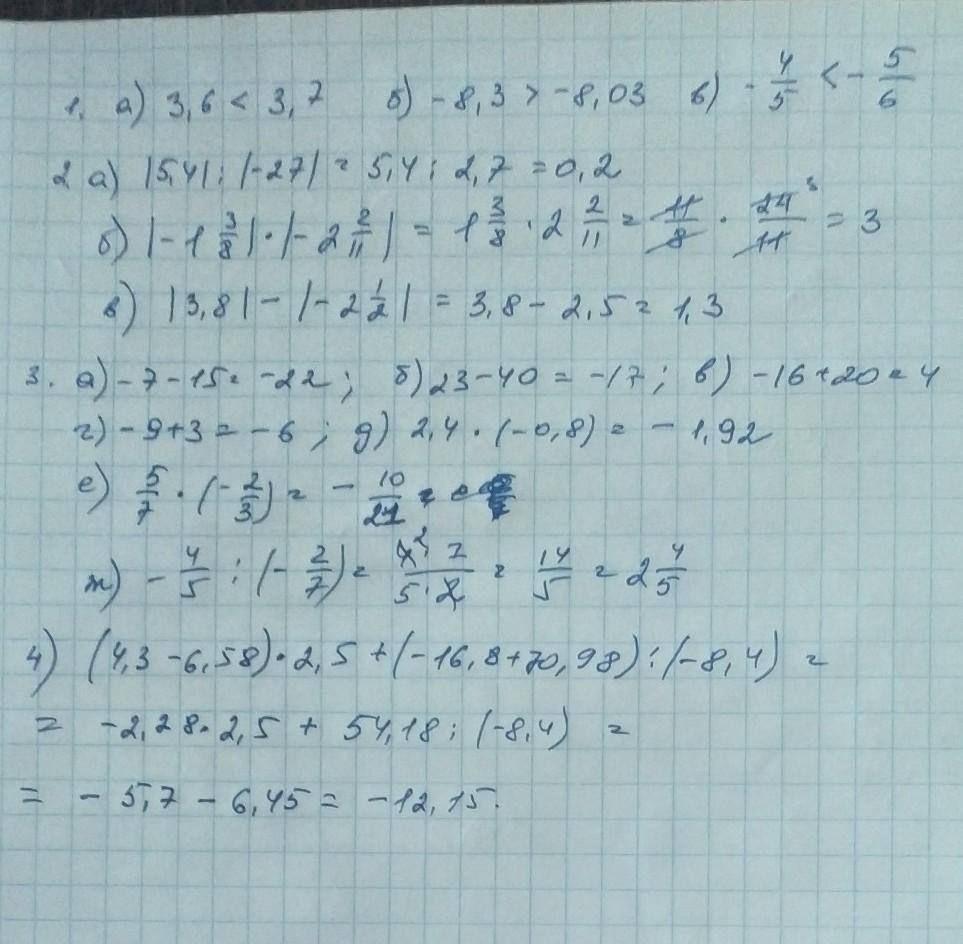 1. а) 3,6 < 3,7 б) -8,3 > -8,03 в) -4/5 < -5/6
2 а) |5,4| : |-27| = 5,4 : 2,7 = 0,2
б) |-1 3/8| · |-2 2/11| = 1 3/8 · 2 2/11 = 11/8 · 24/11 ³ = 3
в) |3,8| - |-2 1/2| = 3,8 - 2,5 = 1,3
3. а) -7-15 = -22; б) 23-40 = -17; в) -16+20 = 4
г) -9+3 = -6; д) 2,4 · (-0,8) = -1,92
е) 5/7 · (-2/3) = -10/21 =
ж) -4/5 : (-2/7) = 4² · 7 / 5 · 2 = 14/5 = 2 4/5
4) (4,3 - 6,58) · 2,5 + (-16,8 + 70,98) : (-8,4) =
= -2,28 · 2,5 + 54,18 : (-8,4) =
= -5,7 - 6,45 = -12,15.